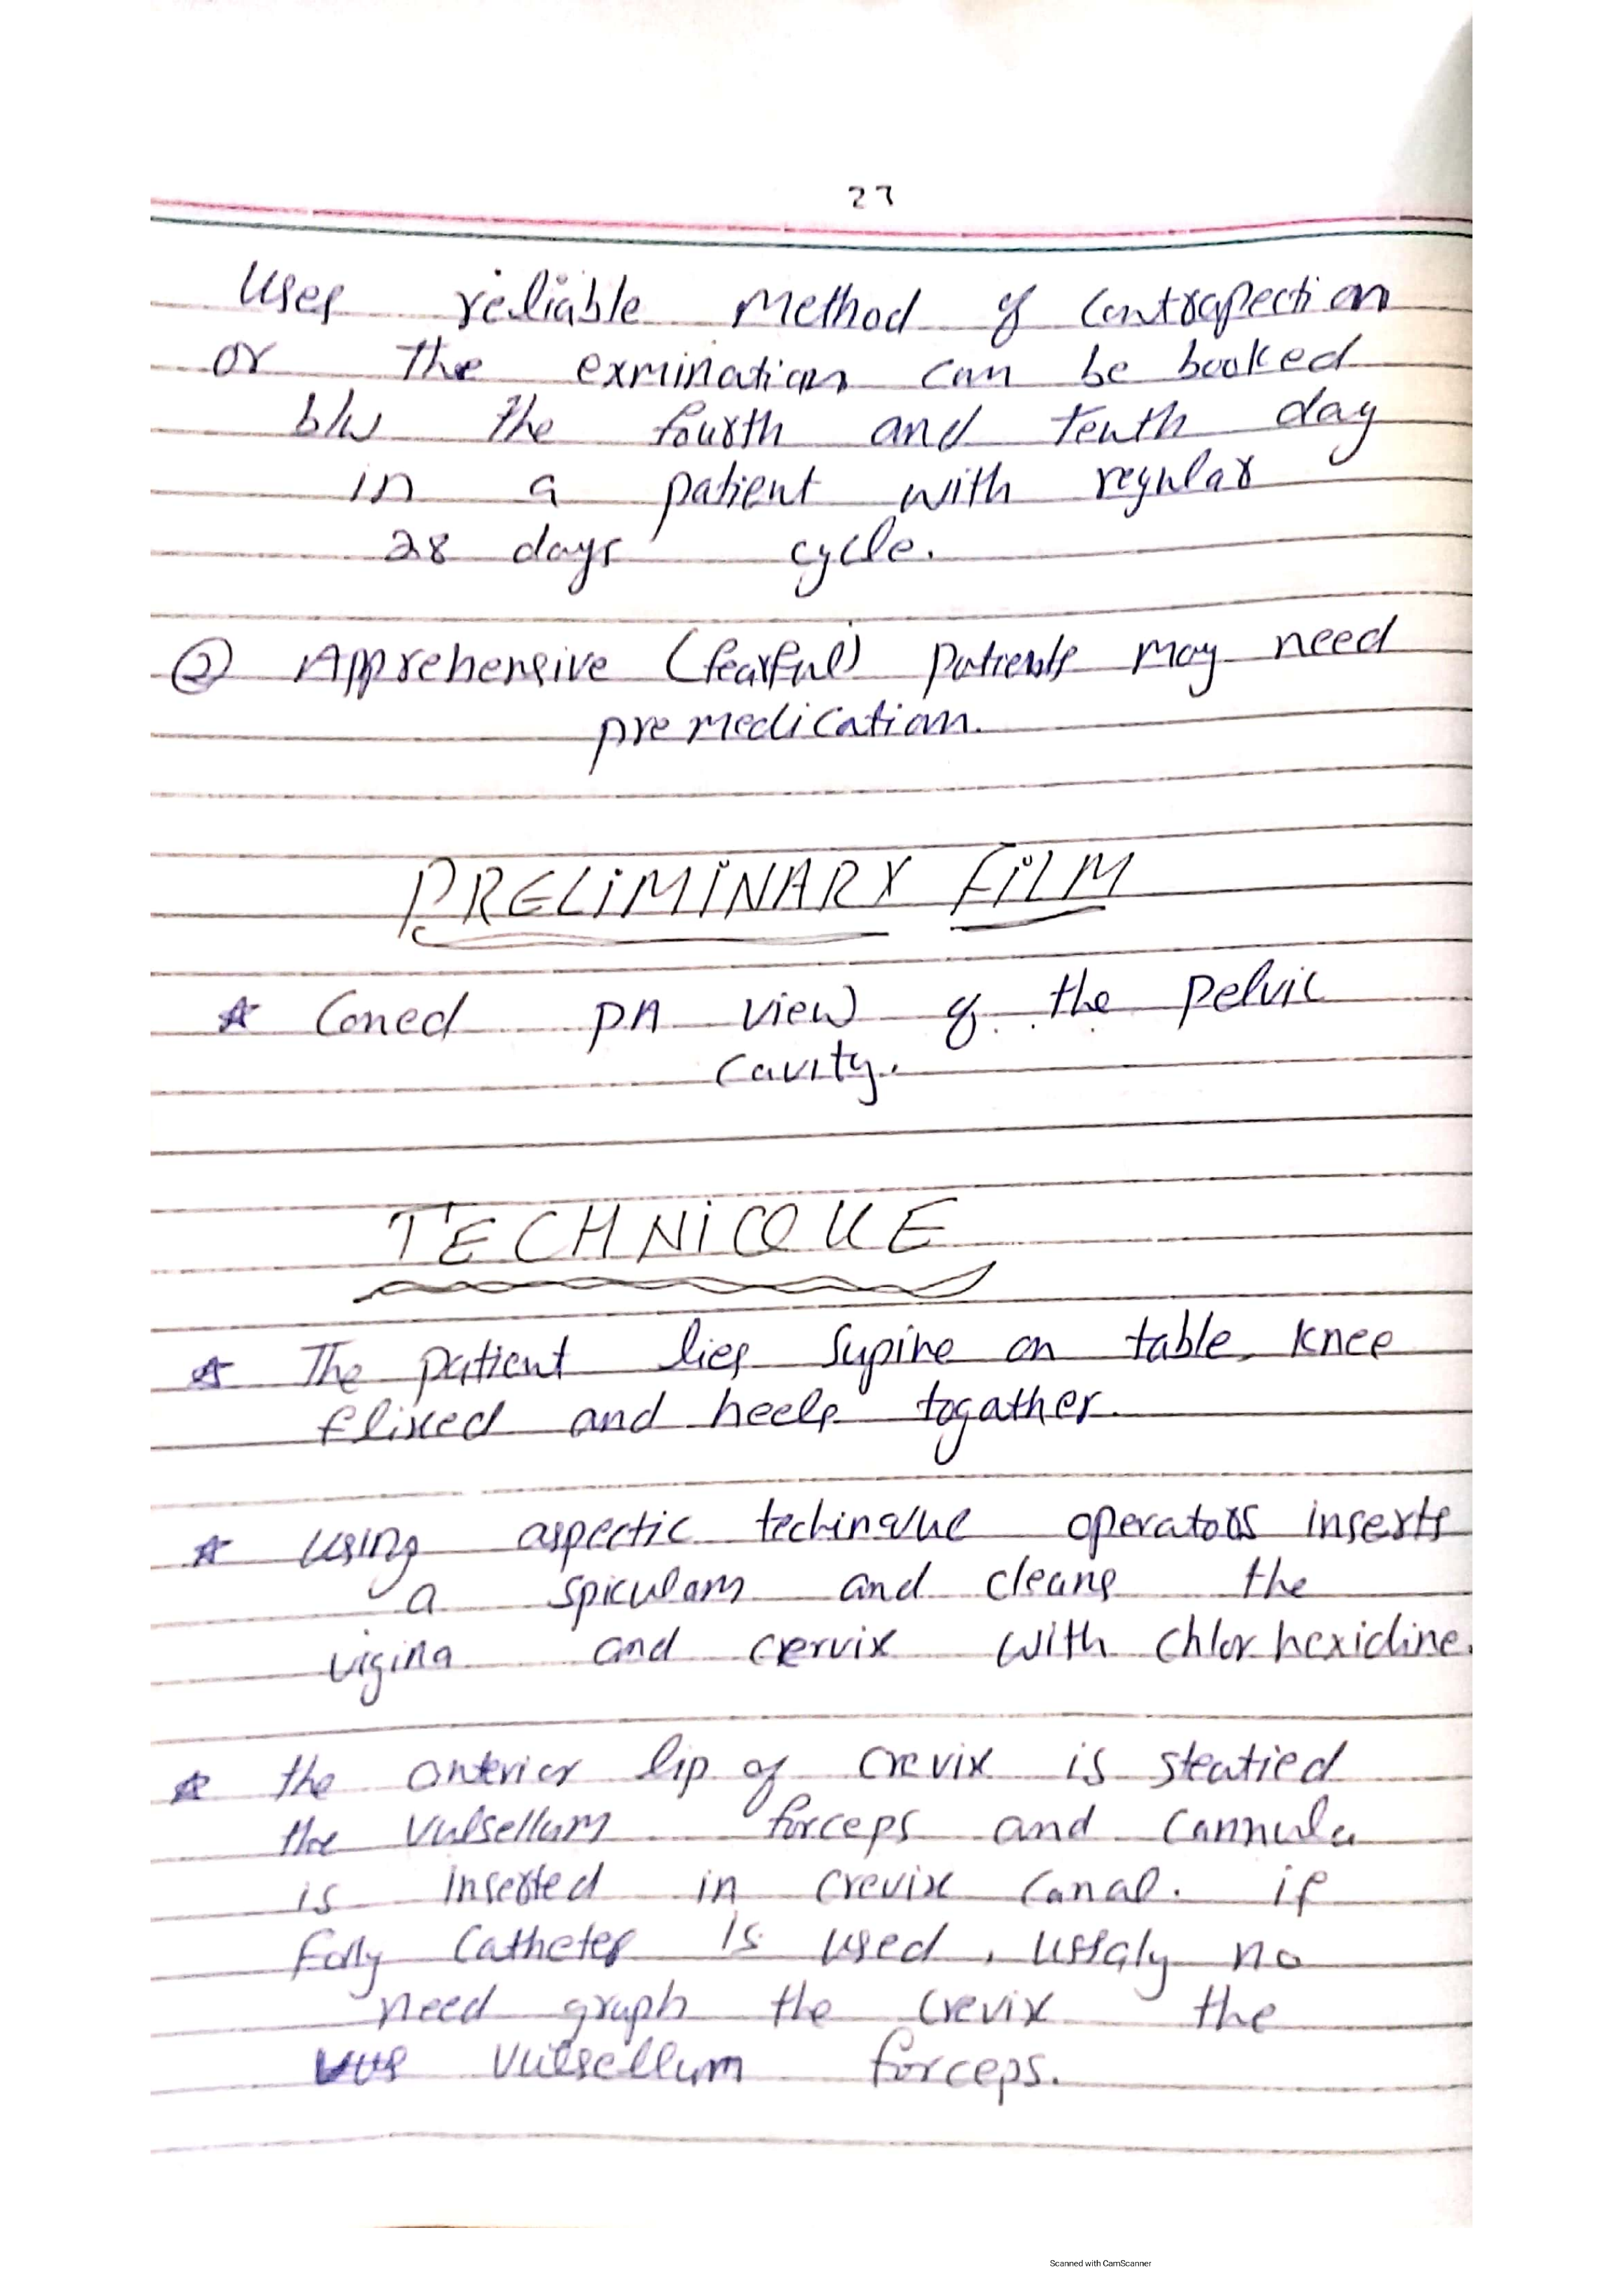 27
Uses reliable Method of Contrapection
or The exmination can be booked
b/w The fourth and Tenth day
in a patient with regular
28 days cycle.
② Apprehensive (fearful) Patients may need
premedication.
PRELIMINARY FILM
☆ Coned PA view of the pelvic
cavity.
TECHNICQUE
☆ The patient lies Supine on table, knee
flixed and heels togather.
☆ Using aspectic techinque operators inserts
a spiculam and cleans the
vigina and cervix with chlorhexidine.
☆ the anterior lip of crevix is steatied
the Vulsellum forceps and Cannula
is inserted in crevix Canal. if
Folly Catheter is used, ussaly no
need graph the crevix the
Vulsellum forceps.
Scanned with CamScanner